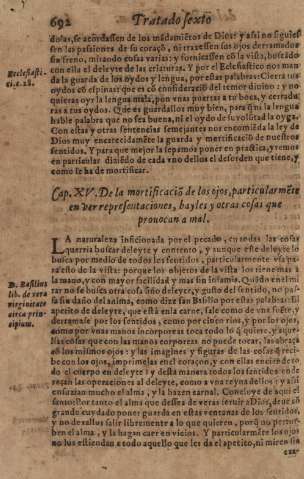 692 Tratado sexto
dolas, se acordassen de los mãdamiẽtos de Dios: y assi no siguies
sen las passiones de su coraçõ, ni traxessen sos ojos derramados
sin freno, mirando cosas varias: y fornicassen cõ la vista, buscãdo
con ella el deleyte de las criaturas. Y por el Ecclesiastico nos man
Ecclesiasti-
ci. c. 28.
da la guarda de los oydos y lengua, por estas palabras: Cierra tus
oydos cõ espinas que es cõ consideraciõ del temor diuino: y no
quieras oyr la lengua mala, pon vnas puertas a tu boca, y cerradu
ras a tus oydos. Que es guardallos muy bien, para que ni la lengua
hable palabra que no sea buena, ni el oydo de su volũtad la oyga.
Con estas y otras sentencias semejantes nos encomiẽda la ley de
Dios muy encarecidamẽte la guarda y mortificaciõ de nuestros
sentidos. Y para que mejor la sepamos poner en practica, yremos
en particular diziẽdo de cada vno dellos el desorden que tiene, y
como se ha de mortificar.
Cap. XV. De la mortificaciõ de los ojos, particularmẽte
en ver representaciones, bayles y otras cosas que
prouocan a mal.
LA naturaleza inficionada por el pecado, en todas las cosas
querria buscar deleyte y contento, y aunque este deleyte lo
busca por medio de todos los sentidos, particularmente vsa pa
ra esto de la vista: porque los objetos de la vista los tiene mas a
la mano, y con mayor facilidad y mas sin
mar no se busca otra cosa sino deleyte, y gusto del sentido, no pa-
D. Basilius
lib. de vera
virginitate
circa prin-
cipium.
ra su daño del anima, como dize san Basilio por estas palabras: El
apetito de deleyte, que està en la carne, sale como de vna fuẽte, y
derramase por los sentidos, como por ciertos rios, y por los ojos,
como por vnas manos incorporeas toca todo lo q̃ quiere, y aque-
llas cosas que con las manos corporeas no puede tocar, las abraça
cõ los mismos ojos: y las imagines y figuras de las cosas q̃ reci-
be con los ojos, imprimelas en el coraçon, y con ellas enciende to
do el cuerpo en deleyte: y desta manera todos los sentidos
reçan las operaciones al deleyte, como a vna reyna dellos: y assi
ensuzian mucho el alma, y la hazen carnal. Concluye de aqui el
santo
grande cuydado poner guarda en estas ventanas de los sentidos,
y no dexallos salir libremente a lo que quieren, porq̃ no pertur-
ben el alma, y la hagan caer en vicios. Y particularmẽte los ojos
no los estiendan a todo aquello que les da el apetito, ni miren sin